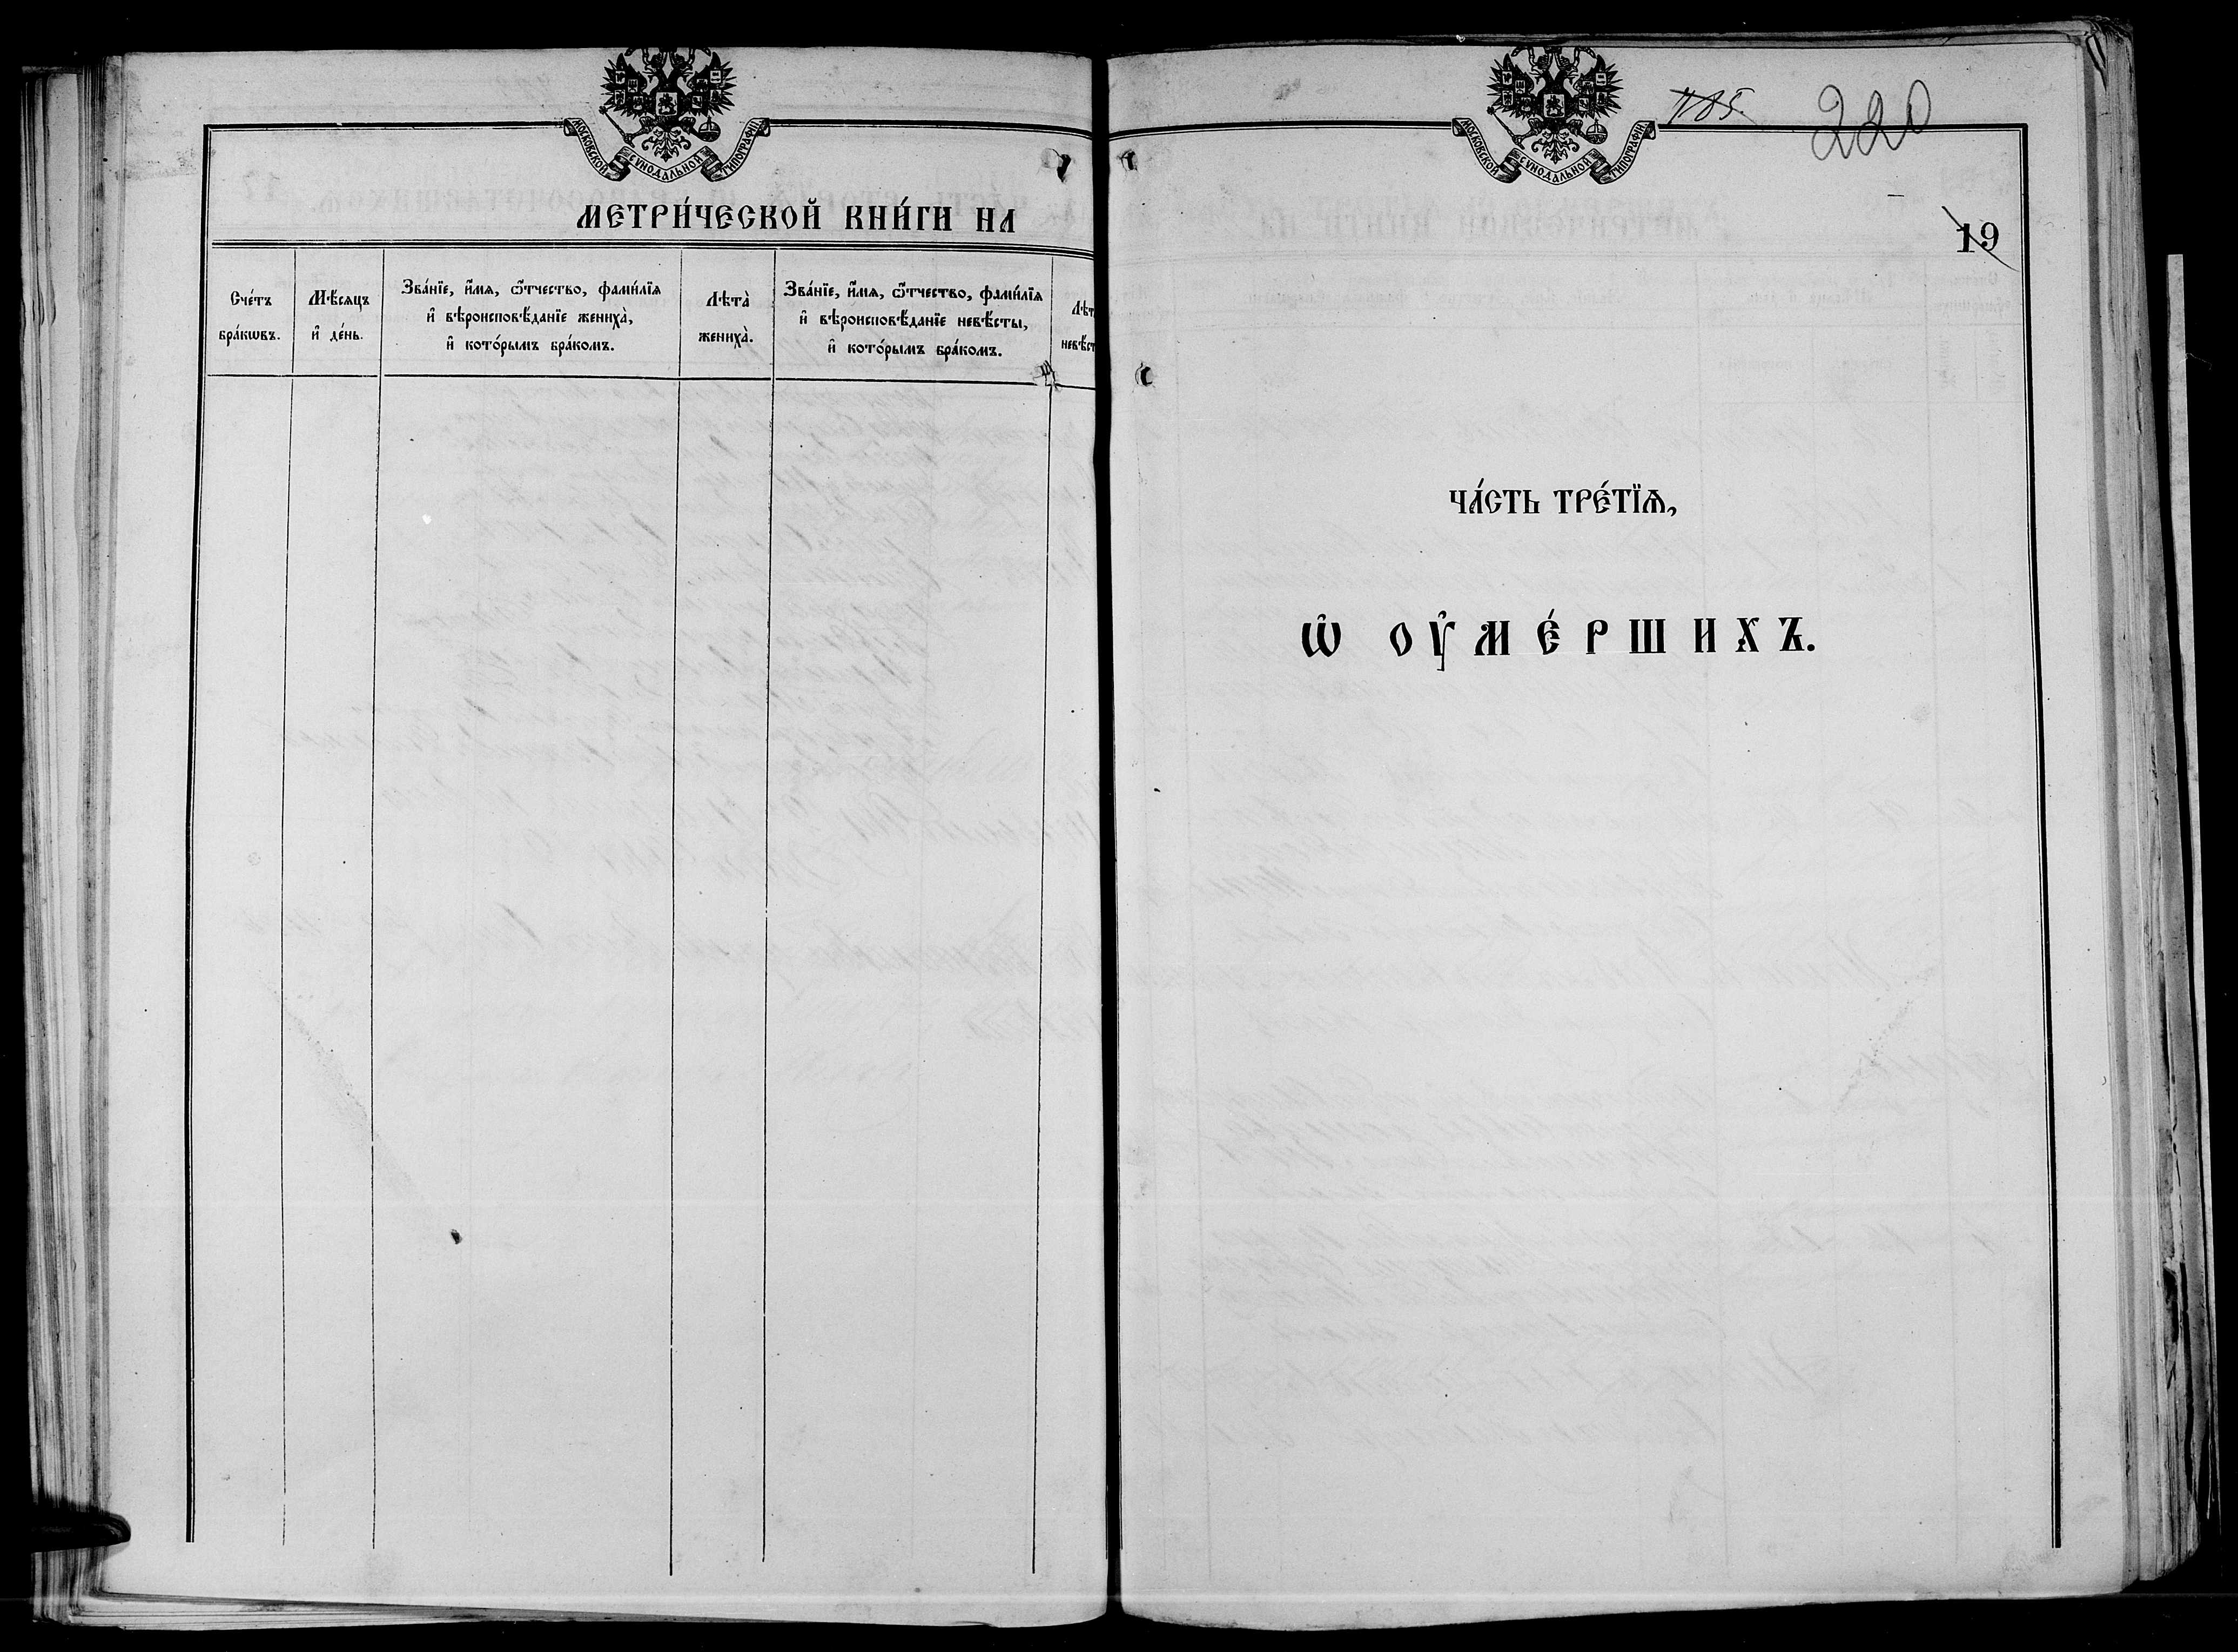 МОСКОВСКОЙ СѴНОДАЛЬНОЙ ТИПОГРАФІИ
МЕТРИ́ЧЕСКОЙ КНИ́ГИ НА
Сче́тъ
бра́кѡвъ.
Мѣ́сяцъ
и҆ де́нь.
Зва́нїе, и҆́мя, ѻ҆́тчество, фами́лїя
и҆ вѣроисповѣ́данїе женихà,
и҆ кото́рымъ бра́комъ.
Лѣтà
женихà.
Зва́нїе, и҆́мя, ѻ҆́тчество, фами́лїя
и҆ вѣроисповѣ́данїе невѣ́сты,
и҆ кото́рымъ бра́комъ.
Лѣт
невѣ́ст
МОСКОВСКОЙ СѴНОДАЛЬНОЙ ТИПОГРАФІИ
220
19
ЧА́СТЬ ТРЕ́ТЇѦ,
Ѡ҆ ОУ҆МЕ́РШИХЪ.